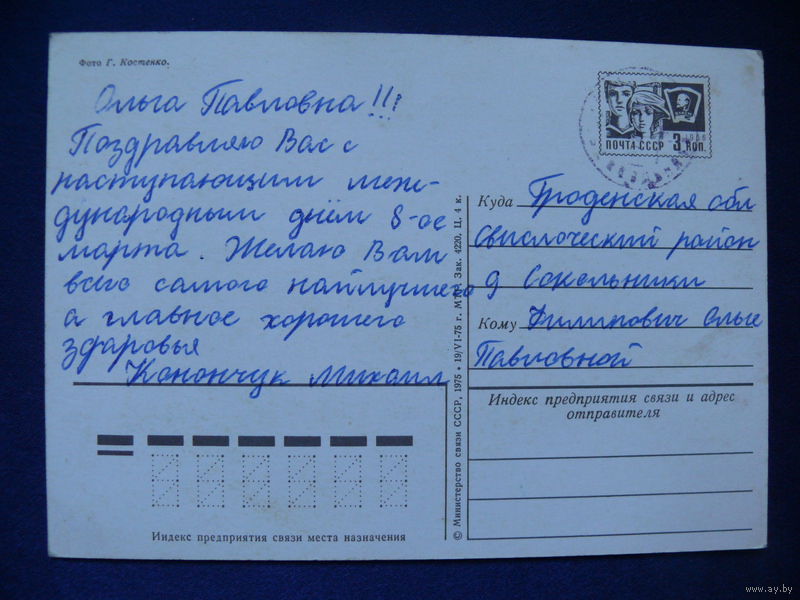 Фото Г. Костенко.
Ольга Павловна!!!
Поздравляю Вас с
наступающим меж-
дународным днём 8-ое
марта. Желаю Вам
всего самого найлучшего
а главное хорошего
здаровья
Конончук Михаил
Индекс предприятия связи места назначения
© Министерство связи СССР, 1975 • 19/VI-75 г. Зак. 4220, Ц. 4 к.
ПОЧТА СССР 3 КОП.
Куда Гроденская обл
Свислоческий район
д Сокольники
Кому Филипович Ольге
Павловной
Индекс предприятия связи и адрес
отправителя
www.ay.by